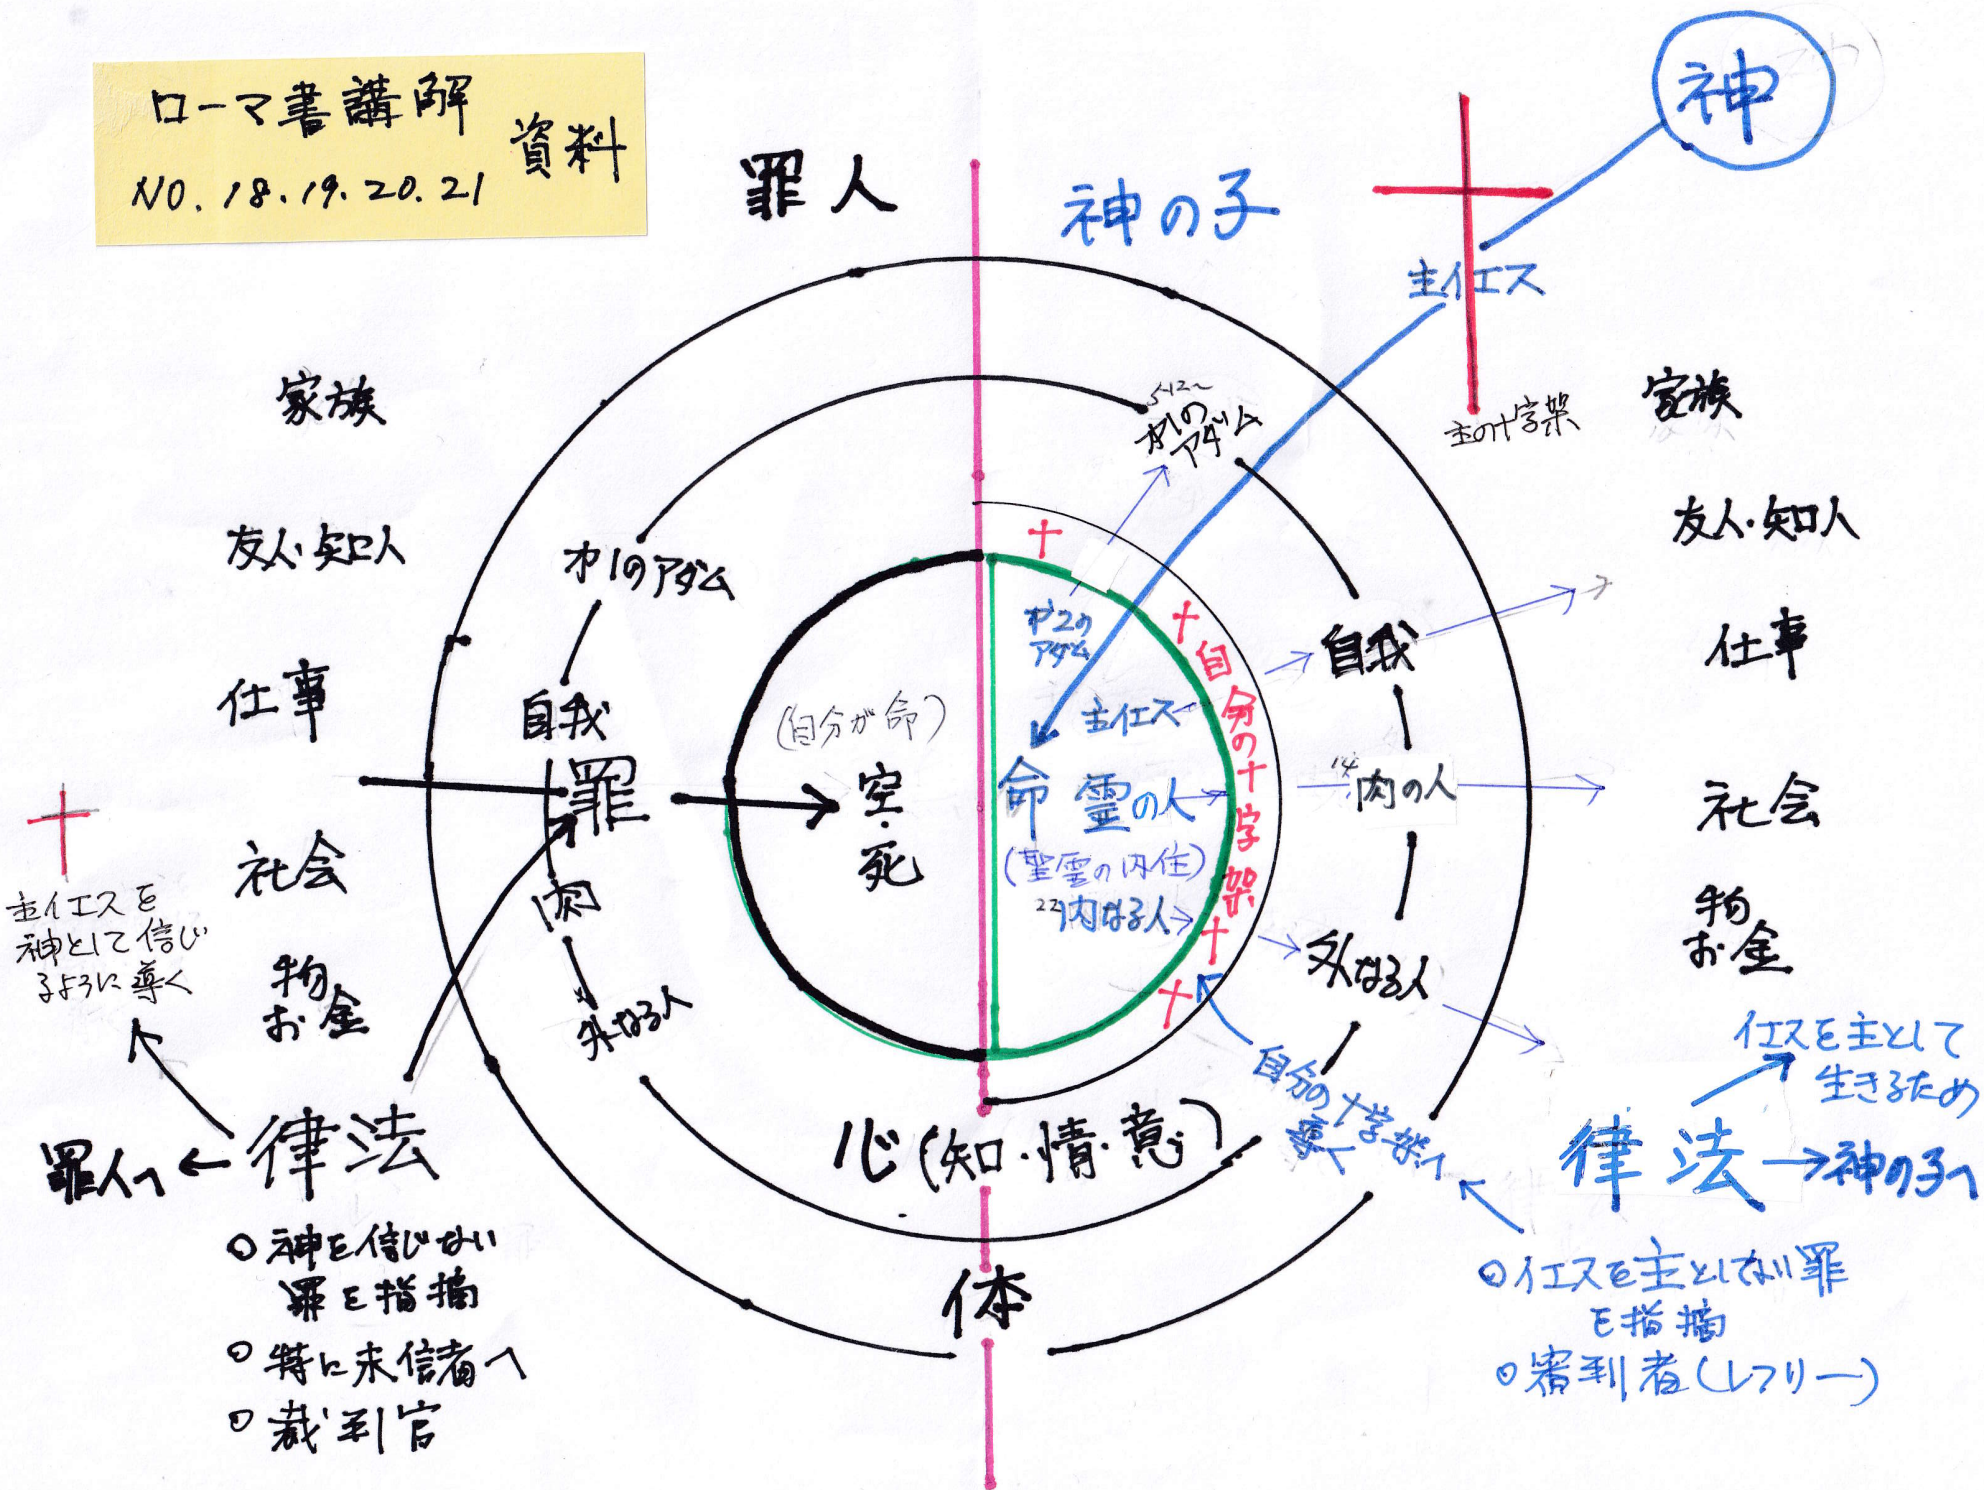 ローマ書講解
資料
NO. 18.19.20.21
罪人
神の子
神
主イエス
主の十字架
家族
友人・知人
仕事
社会
物
お金
家族
友人・知人
仕事
社会
物
お金
オ1のアダム
自我
罪
肉
外なる人
(自分が命)
空・死
5-12~
オ1の
アダム
オ2の
アダム
主イエス
命 霊の人
(聖霊の内住)
22 内なる人
自分の十字架
自我
14 肉の人
外なる人
自分の十字架へ
導く
心(知・情・意)
体
主イエスを
神として信じ
るように導く
罪人へ
律法
○ 神を信じない
罪を指摘
○ 特に未信者へ
○ 裁判官
イエスを主として
生きるため
律法
神の子へ
○イエスを主としない罪
を指摘
○審判者(レフリー)